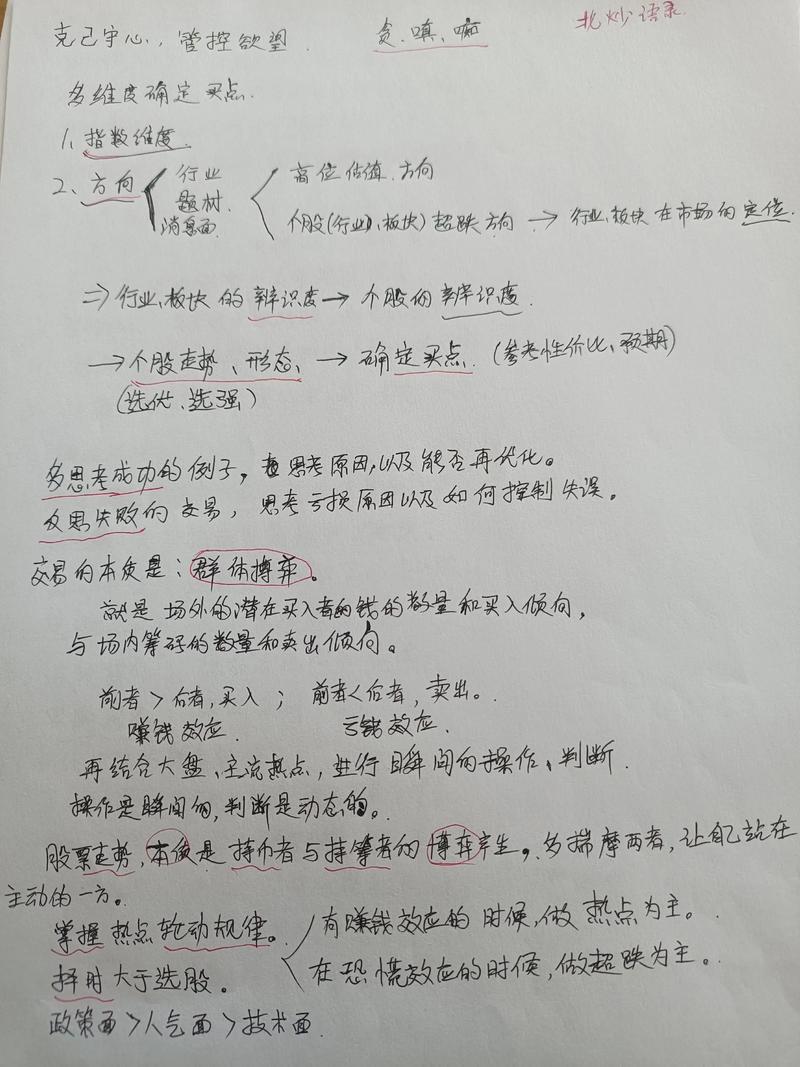 克己守心，管控欲望． 贪、嗔、痴 北炒语录
多维度确定买点．
1、指数维度．
2、方向 行业 题材． 消息面
高位估值、方向
个股(行业)、板块) 超跌方向 → 行业、板块在市场的定位．
⇒ 行业、板块的辨识度 → 个股的辨识度．
→ 个股走势、形态、→ 确定买点．(参考性价比、预期)
(选优、选强)
多思考成功的例子，思考原因，以及能否再优化。
反思失败的交易，思考亏损原因以及如何控制失误。
交易的本质是：群体博弈。
就是场外的潜在买入者的钱的数量和买入倾向，
与场内筹码的数量和卖出倾向。
前者＞后者，买入； 前者＜后者，卖出。
赚钱效应． 亏钱效应．
再结合大盘、主流热点，进行瞬间的操作、判断．
操作是瞬间的，判断是动态的。
股票走势，本质是持币者与持筹者的博弈产生。多揣摩两者，让自己站在
主动的一方。
掌握热点轮动规律。
择时大于选股。
有赚钱效应的时候，做热点为主。
在恐慌效应的时候，做超跌为主。
政策面＞人气面＞技术面．